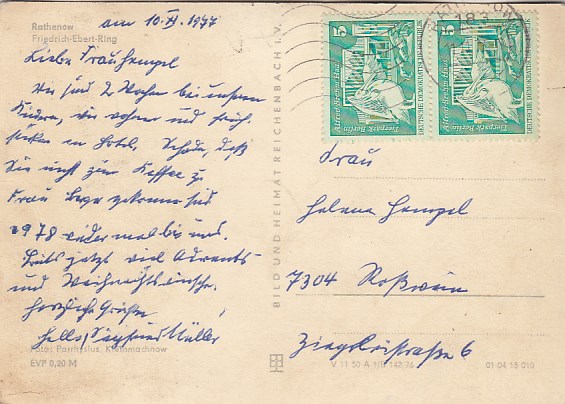 Rathenow
Friedrich-Ebert-Ring
am 10.XI.1977
Liebe Frau Hempel
Wir sind 2 Wochen bei unseren
Kindern, wir wohnen und früh-
stücken im Hotel, Schade, daß
Sie nicht zum Kaffee zu
Frau gekommen sind
1978 wieder mal bei uns.
Bereits jetzt viel Advents-
und Weihnachtswünsche.
Herzliche Grüße
Siegfried Müller
Foto: Parrhysius, Kleinmachnow
EVP 0,20 M
BILD UND HEIMAT REICHENBACH I. V.
5
Alfred-Brehm-Haus
Tierpark Berlin
DEUTSCHE DEMOKRATISCHE
5
Alfred-Brehm-Haus
Tierpark Berlin
DEUTSCHE DEMOKRATISCHE
Frau
Helene Hempel
7304 Roßwein
Ziegeleistraße 6
V 11 50 A 1/B 142/76
01 04 15 010